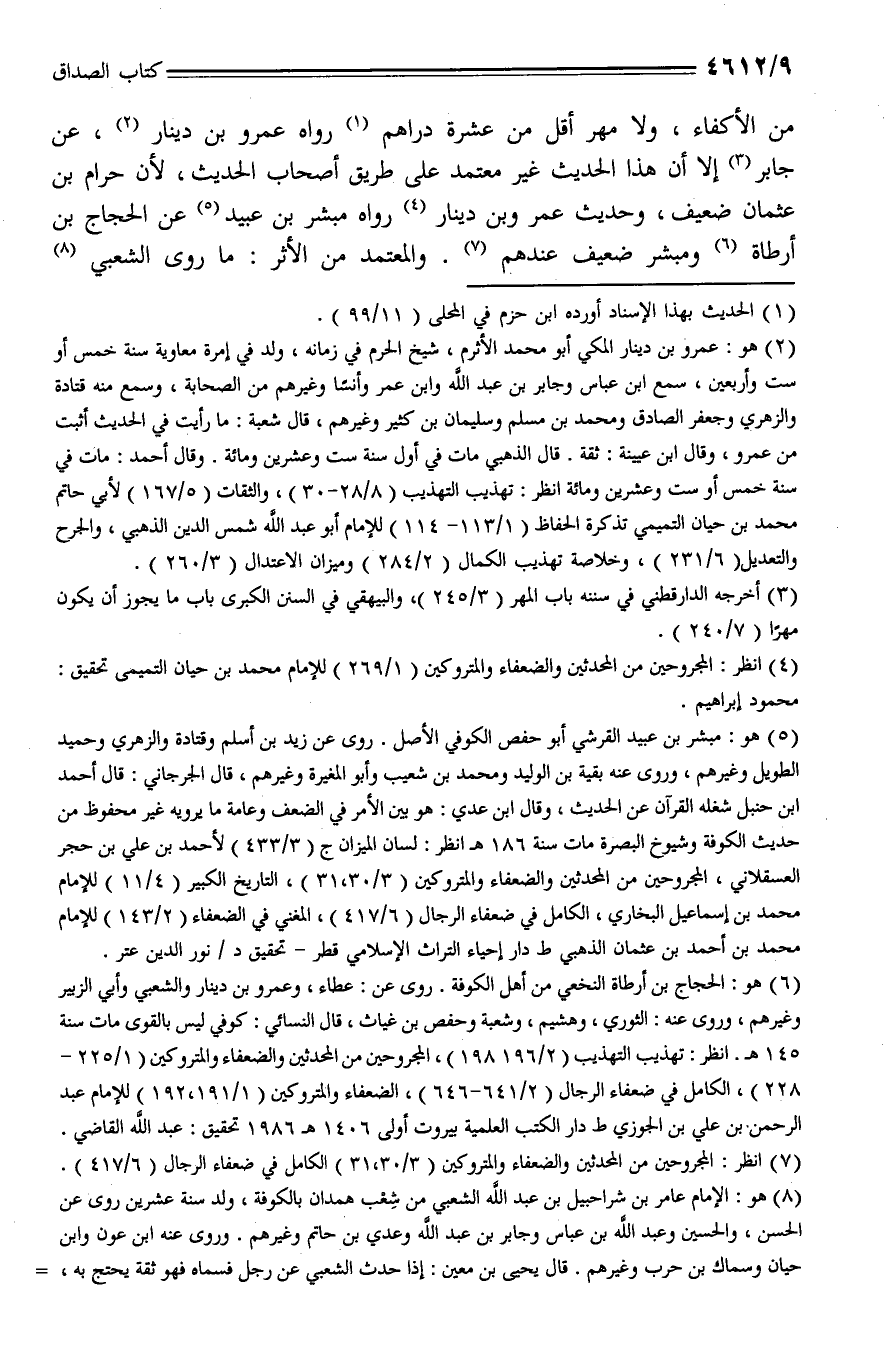 ٤٦١٢/٩ كتاب الصداق
من الأكفاء ، ولا مهر أقل من عشرة دراهم (١) رواه عمرو بن دينار (٢) ، عن
جابر (٣) إلا أن هذا الحديث غير معتمد على طريق أصحاب الحديث ، لأن حرام بن
عثمان ضعيف ، وحديث عمر وبن دينار (٤) رواه مبشر بن عبيد (٥) عن الحجاج بن
أرطاة (٦) ومبشر ضعيف عندهم (٧) . والمعتمد من الأثر : ما روى الشعبي (٨)
(١) الحديث بهذا الإسناد أورده ابن حزم في المحلى ( ٩٩/١١ ) .
(٢) هو : عمرو بن دينار المكي أبو محمد الأثرم ، شيخ الحرم في زمانه ، ولد في إمرة معاوية سنة خمس أو
ست وأربعين ، سمع ابن عباس وجابر بن عبد الله وابن عمر وأنسًا وغيرهم من الصحابة ، وسمع منه قتادة
والزهري وجعفر الصادق ومحمد بن مسلم وسليمان بن كثير وغيرهم ، قال شعبة : ما رأيت في الحديث أثبت
من عمرو ، وقال ابن عيينة : ثقة . قال الذهبي مات في أول سنة ست وعشرين ومائة . وقال أحمد : مات في
سنة خمس أو ست وعشرين ومائة انظر : تهذيب التهذيب ( ٢٨/٨-٣٠ ) ، والثقات ( ١٦٧/٥ ) لأبي حاتم
محمد بن حيان التميمي تذكرة الحفاظ ( ١١٣/١- ١١٤ ) للإمام أبو عبد الله شمس الدين الذهبي ، والجرح
والتعديل( ٢٣١/٦ ) ، وخلاصة تهذيب الكمال ( ٢٨٤/٢ ) وميزان الاعتدال ( ٢٦٠/٣ ) .
(٣) أخرجه الدارقطني في سننه باب المهر ( ٢٤٥/٣ )، والبيهقي في السنن الكبرى باب ما يجوز أن يكون
مهرًا ( ٢٤٠/٧ ) .
(٤) انظر : المجروحين من المحدثين والضعفاء والمتروكين ( ٢٦٩/١ ) للإمام محمد بن حيان التميمى تحقيق :
محمود إبراهيم .
(٥) هو : مبشر بن عبيد القرشي أبو حفص الكوفي الأصل . روى عن زيد بن أسلم وقتادة والزهري وحميد
الطويل وغيرهم ، وروى عنه بقية بن الوليد ومحمد بن شعيب وأبو المغيرة وغيرهم ، قال الجرجاني : قال أحمد
ابن حنبل شغله القرآن عن الحديث ، وقال ابن عدي : هو بين الأمر في الضعف وعامة ما يرويه غير محفوظ من
حديث الكوفة وشيوخ البصرة مات سنة ١٨٦ هـ انظر : لسان الميزان ج ( ٤٣٣/٣ ) لأحمد بن علي بن حجر
العسقلاني ، المجروحين من المحدثين والضعفاء والمتروكين ( ٣١،٣٠/٣ ) ، التاريخ الكبير ( ١١/٤ ) للإمام
محمد بن إسماعيل البخاري ، الكامل في ضعفاء الرجال ( ٤١٧/٦ ) ، المغني في الضعفاء ( ١٤٣/٢ ) للإمام
محمد بن أحمد بن عثمان الذهبي ط دار إحياء التراث الإسلامي قطر – تحقيق د / نور الدين عتر .
(٦) هو : الحجاج بن أرطاة النخعي من أهل الكوفة . روى عن : عطاء ، وعمرو بن دينار والشعبي وأبي الزبير
وغيرهم ، وروى عنه : الثوري ، وهشيم ، وشعبة وحفص بن غياث ، قال النسائي : كوفي ليس بالقوى مات سنة
١٤٥ هـ . انظر : تهذيب التهذيب ( ١٩٦/٢ ١٩٨ ) ، المجروحين من المحدثين والضعفاء والمتروكين ( ٢٢٥/١ –
٢٢٨ ) ، الكامل في ضعفاء الرجال ( ٦٤١/٢-٦٤٦ ) ، الضعفاء والمتروكين ( ١٩٢،١٩١/١ ) للإمام عبد
الرحمن بن علي بن الجوزي ط دار الكتب العلمية بيروت أولى ١٤٠٦ هـ ١٩٨٦ تحقيق : عبد الله القاضي .
(٧) انظر : المجروحين من المحدثين والضعفاء والمتروكين ( ٣١،٣٠/٣ ) الكامل في ضعفاء الرجال ( ٤١٧/٦ ) .
(٨) هو : الإمام عامر بن شراحبيل بن عبد الله الشعبي من شِعْب همدان بالكوفة ، ولد سنة عشرين روى عن
الحسن ، والحسين وعبد الله بن عباس وجابر بن عبد الله وعدي بن حاتم وغيرهم . وروى عنه ابن عون وابن
حيان وسماك بن حرب وغيرهم . قال يحيى بن معين : إذا حدث الشعبي عن رجل فسماه فهو ثقة يحتج به ، =